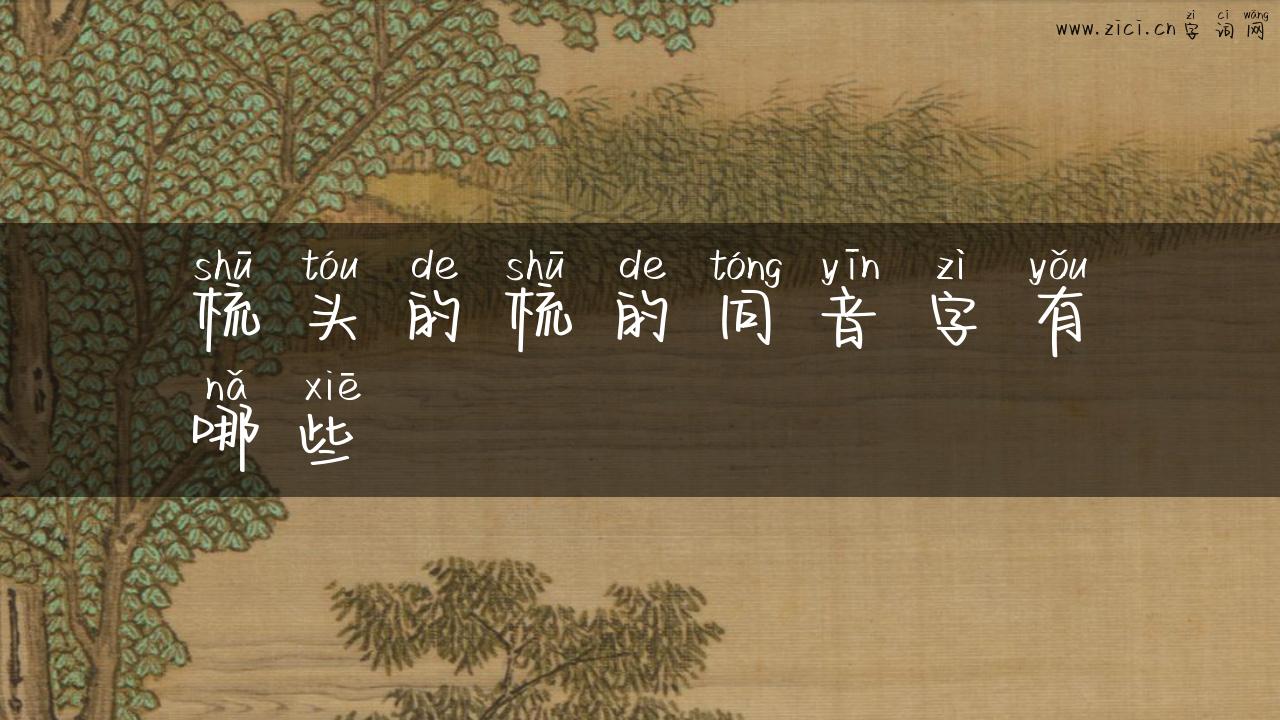 zì cí wǎng
www.zici.cn字词网
shū tóu de shū de tóng yīn zì yǒu
梳头的梳的同音字有
nǎ xiē
哪些